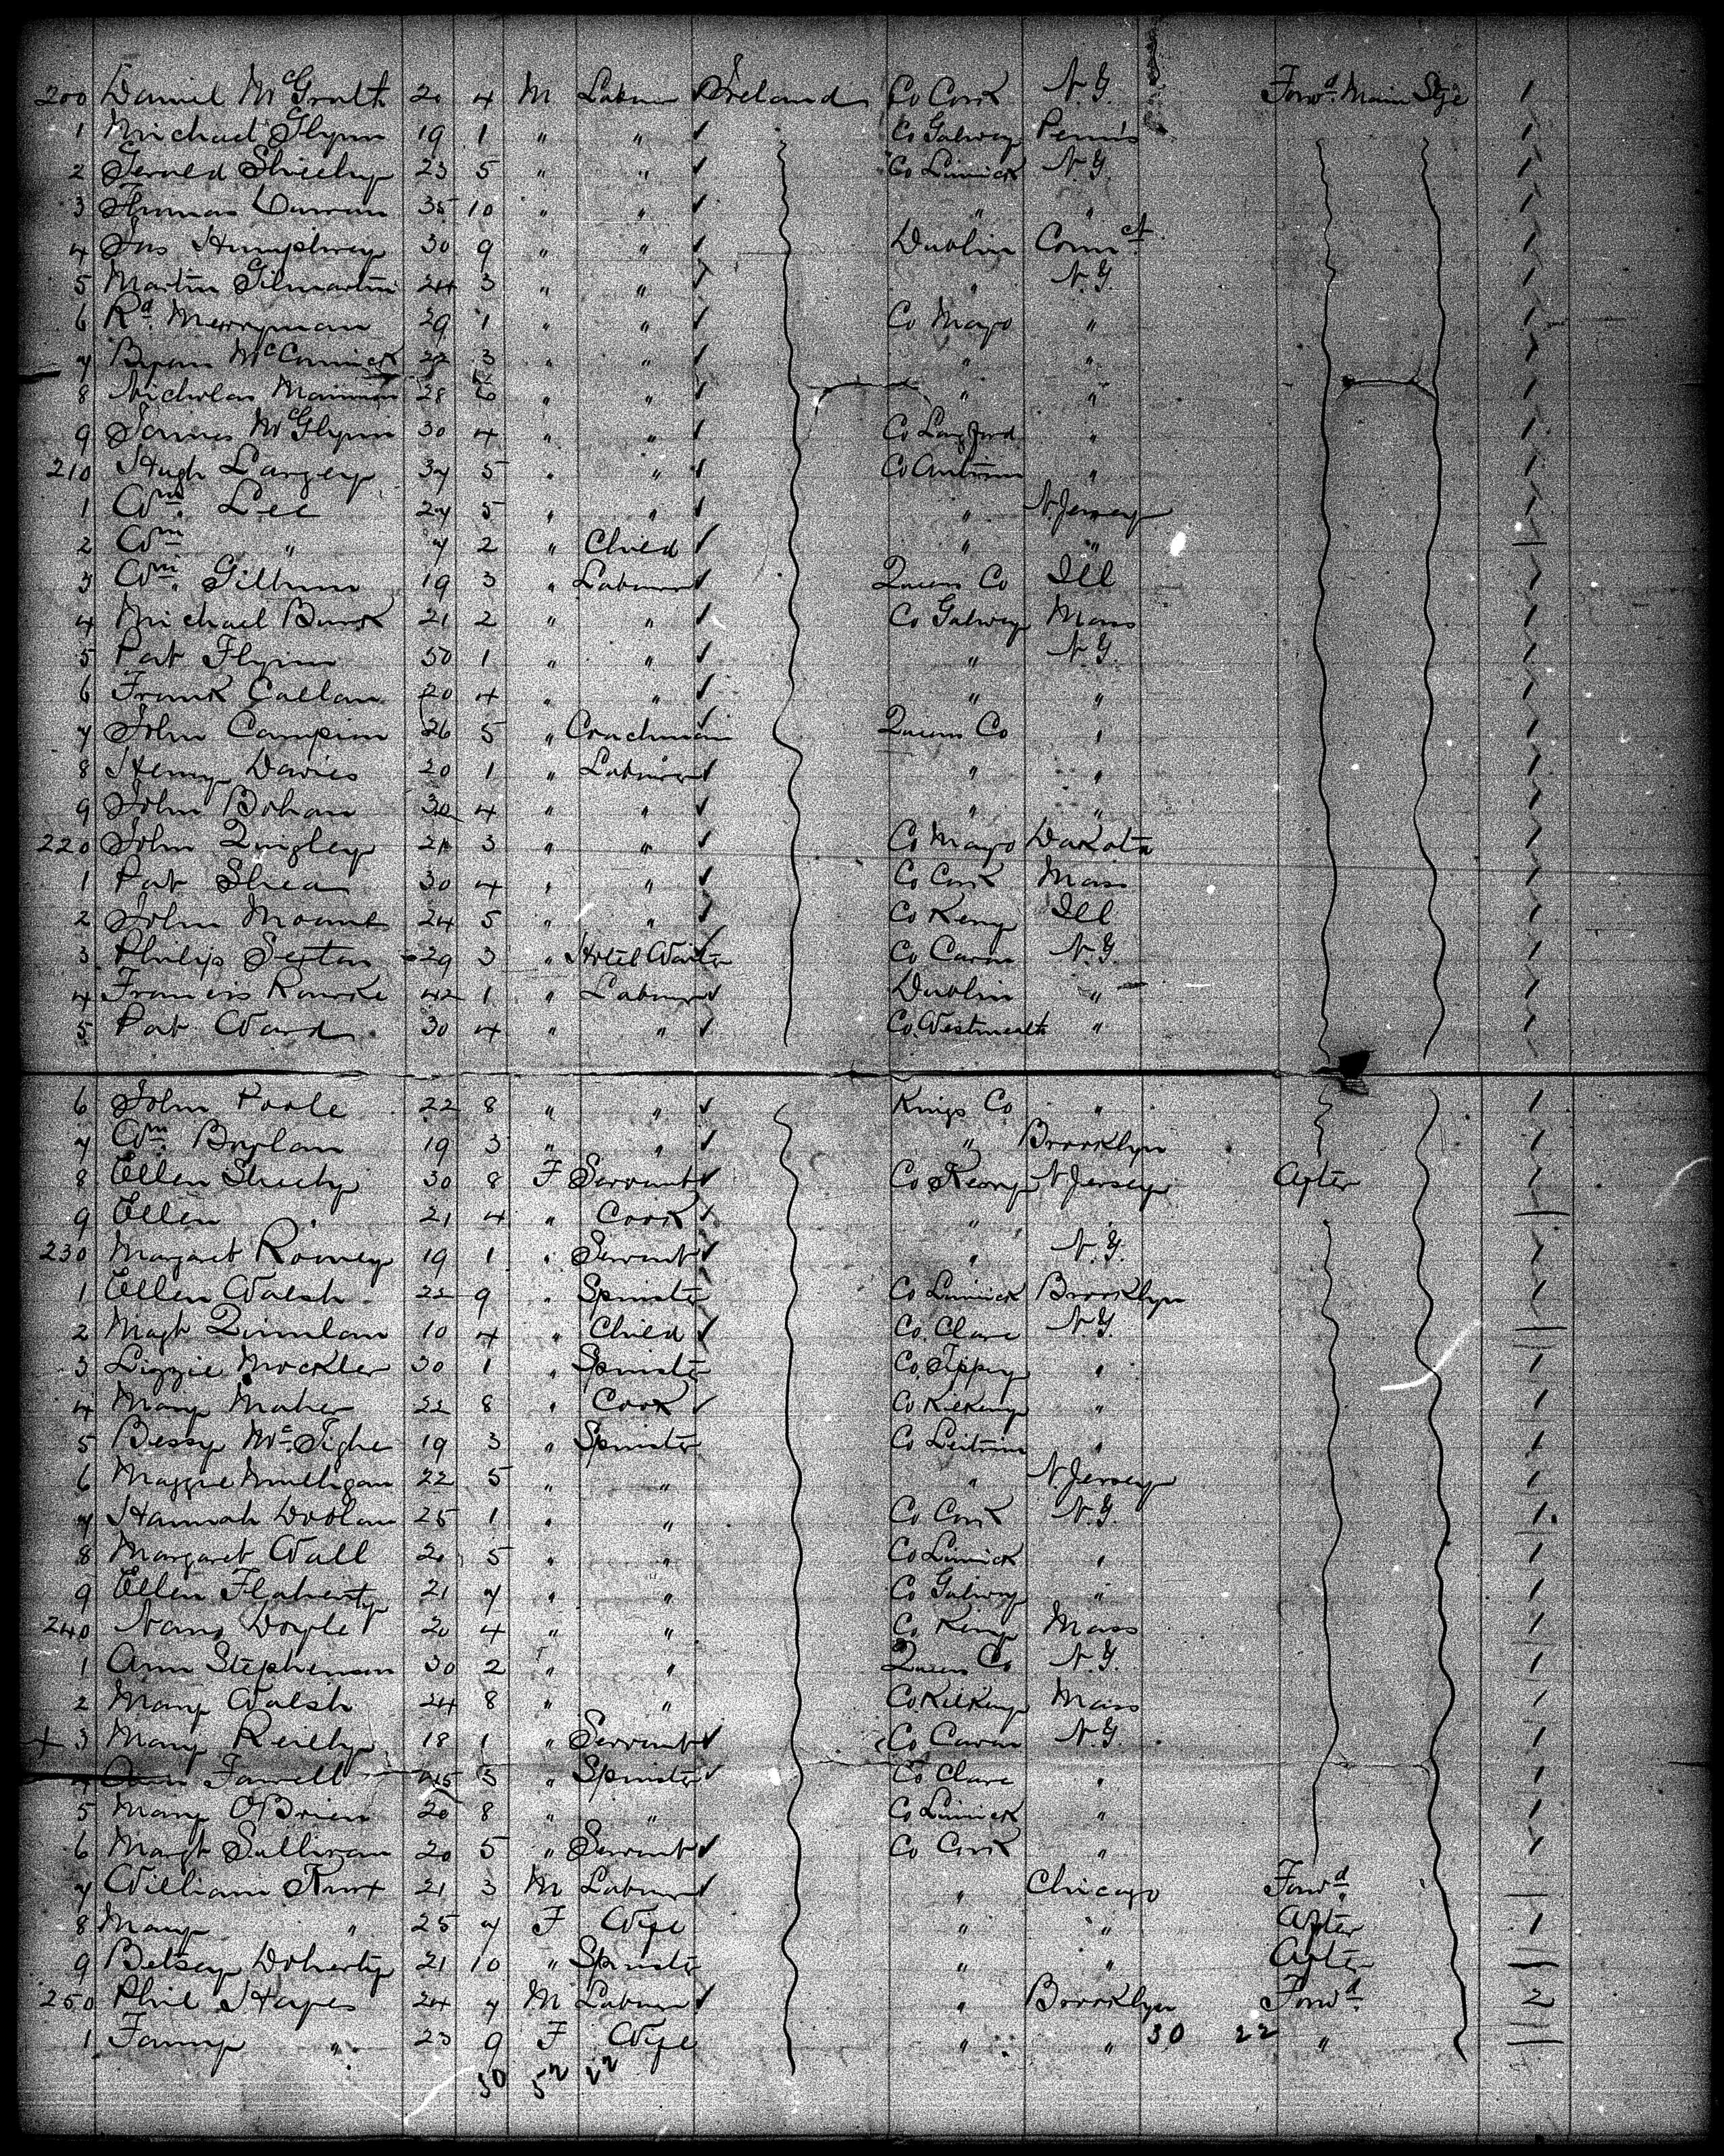 200 Daniel McGrath 20 4 M Labour Ireland Co Cork N.Y. Forwd. Main Stge 1
1 Michael Flynn 19 1 " " ✓ Co Galway Penn's 1
2 Gerald Shieehy 23 5 " " ✓ Co Limrick N.Y. 1
3 Thomas Curran 35 10 " " ✓ " " 1
4 Jas Humphrey 30 9 " " ✓ Dublin Connct 1
5 Martin Gilmartin 24 3 " " ✓ " N.Y. 1
6 Rd. Merryman 29 1 " " ✓ Co Mayo " 1
7 Bryan McCormick 22 3 " " ✓ " " 1
8 Nicholas 28 6 " " ✓ " " 1
9 James McGlynn 30 4 " " ✓ Co Longford " 1
210 Hugh Largey 37 5 " " ✓ Co Antrim " 1
1 Wm. Lee 27 5 " " ✓ " N. Jersey 1
2 Wm " 7 2 " Child ✓ " " —
3 Wm. 19 3 " Labourer ✓ Queens Co Ill 1
4 Michael Burk 21 2 " " ✓ Co Galway Mass 1
5 Pat Flynn 50 1 " " ✓ " N.Y. 1
6 Frank Callan 20 4 " " ✓ " " 1
7 John Campion 26 5 " Coachman ✓ Queens Co " 1
8 Henry Davies 20 1 " Labourer ✓ " " 1
9 John Bohan 30 4 " " ✓ " " 1
220 John Quigley 21 3 " " ✓ Co Mayo Dakota 1
1 Pat Shea 30 4 " " ✓ Co Cork Mass 1
2 John 24 5 " " ✓ Co Kerry Ill 1
3 Philip Sexton 29 3 " Hotel Waiter ✓ Co Cavan N.Y. 1
4 Francis Rourke 42 1 " Labourer ✓ Dublin " 1
5 Pat Ward 30 4 " " ✓ Co. Westmeath " 1
6 John Poole 22 8 " " ✓ Kings Co " 1
7 Wm. Boylan 19 3 " " ✓ " Brooklyn 1
8 Ellen Sheehy 30 8 F Servant ✓ Co Kerry N Jersey After 1
9 Ellen " 21 4 " Cook ✓ " " —
230 Margaret Roney 19 1 " Servant ✓ " N.Y. 1
1 Ellen Walsh 22 9 " Spinster Co Limrick Brooklyn 1
2 Magt Quinlan 10 4 " Child ✓ Co. Clare N.Y. —
3 Lizzie Mockler 30 1 " Spinster Co. Tippry " 1
4 Mary Maher 22 8 " Cook ✓ Co Kilkeny " 1
5 Bessy McTighe 19 3 " Spinster Co Leitrim " 1
6 Maggie Mulligan 22 5 " " " N Jersey 1
7 Hannah Doolan 25 1 " " Co Cork N.Y. 1
8 Margaret Wall 20 5 " " Co Limrick " 1
9 Ellen Flaherty 21 7 " " Co Galway " 1
240 Nano Doyle 20 4 " " Co Kerry Mass 1
1 Ann Stephenson 30 2 " " Queens Co N.Y. 1
2 Mary Walsh 24 8 " " Co Kilkeny Mass 1
+ 3 Mary Reilly 18 1 " Servant ✓ Co Cavan N.Y. 1
4 Ann Farrell 45 5 " Spinster ✓ Co Clare " 1
5 Mary O'Brien 20 8 " " Co Limrick " 1
6 Magt Sullivan 20 5 " Servant ✓ Co Cork " 1
7 William 21 3 M Labourer ✓ " Chicago Forwd. —
8 Mary " 25 7 F Wife " " After 1
9 Betsey Doherty 21 10 " Spinster " " After —
250 Phil Hayes 24 7 M Labour ✓ " Brooklyn Forwd. 2
1 Fanny " 23 9 F Wife " " 30 22 " —
30 52 22